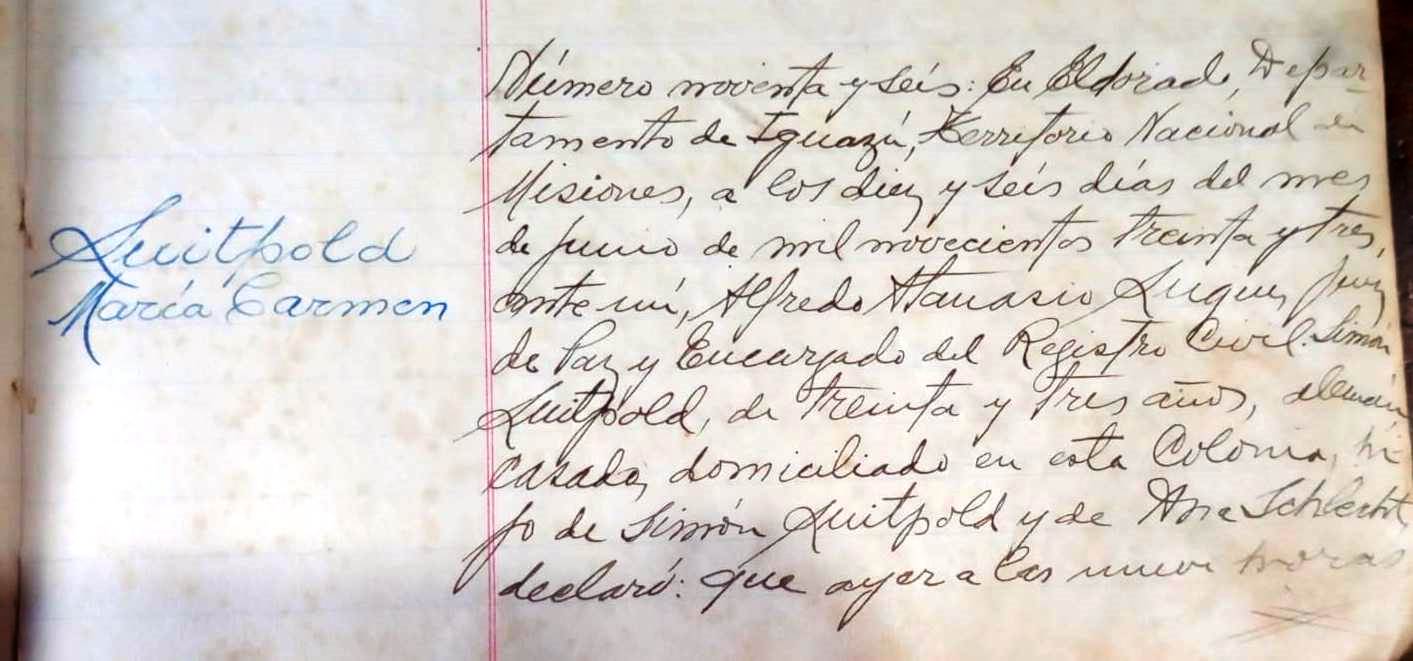 Luitpold
María Carmen
Número noventa y seis: En Eldorado, Depar-
tamento de Iguazú, Territorio Nacional de
Misiones, a los diez y seis días del mes
de junio de mil novecientos treinta y tres,
ante mí, Alfredo Atanasio Luque, Juez
de Paz y Encargado del Registro Civil. Simón
Luitpold, de treinta y tres años, alemán
casado, domiciliado en esta Colonia, hi-
jo de Simón Luitpold y de Ana Schlecht,
declaró: Que ayer a las nueve horas